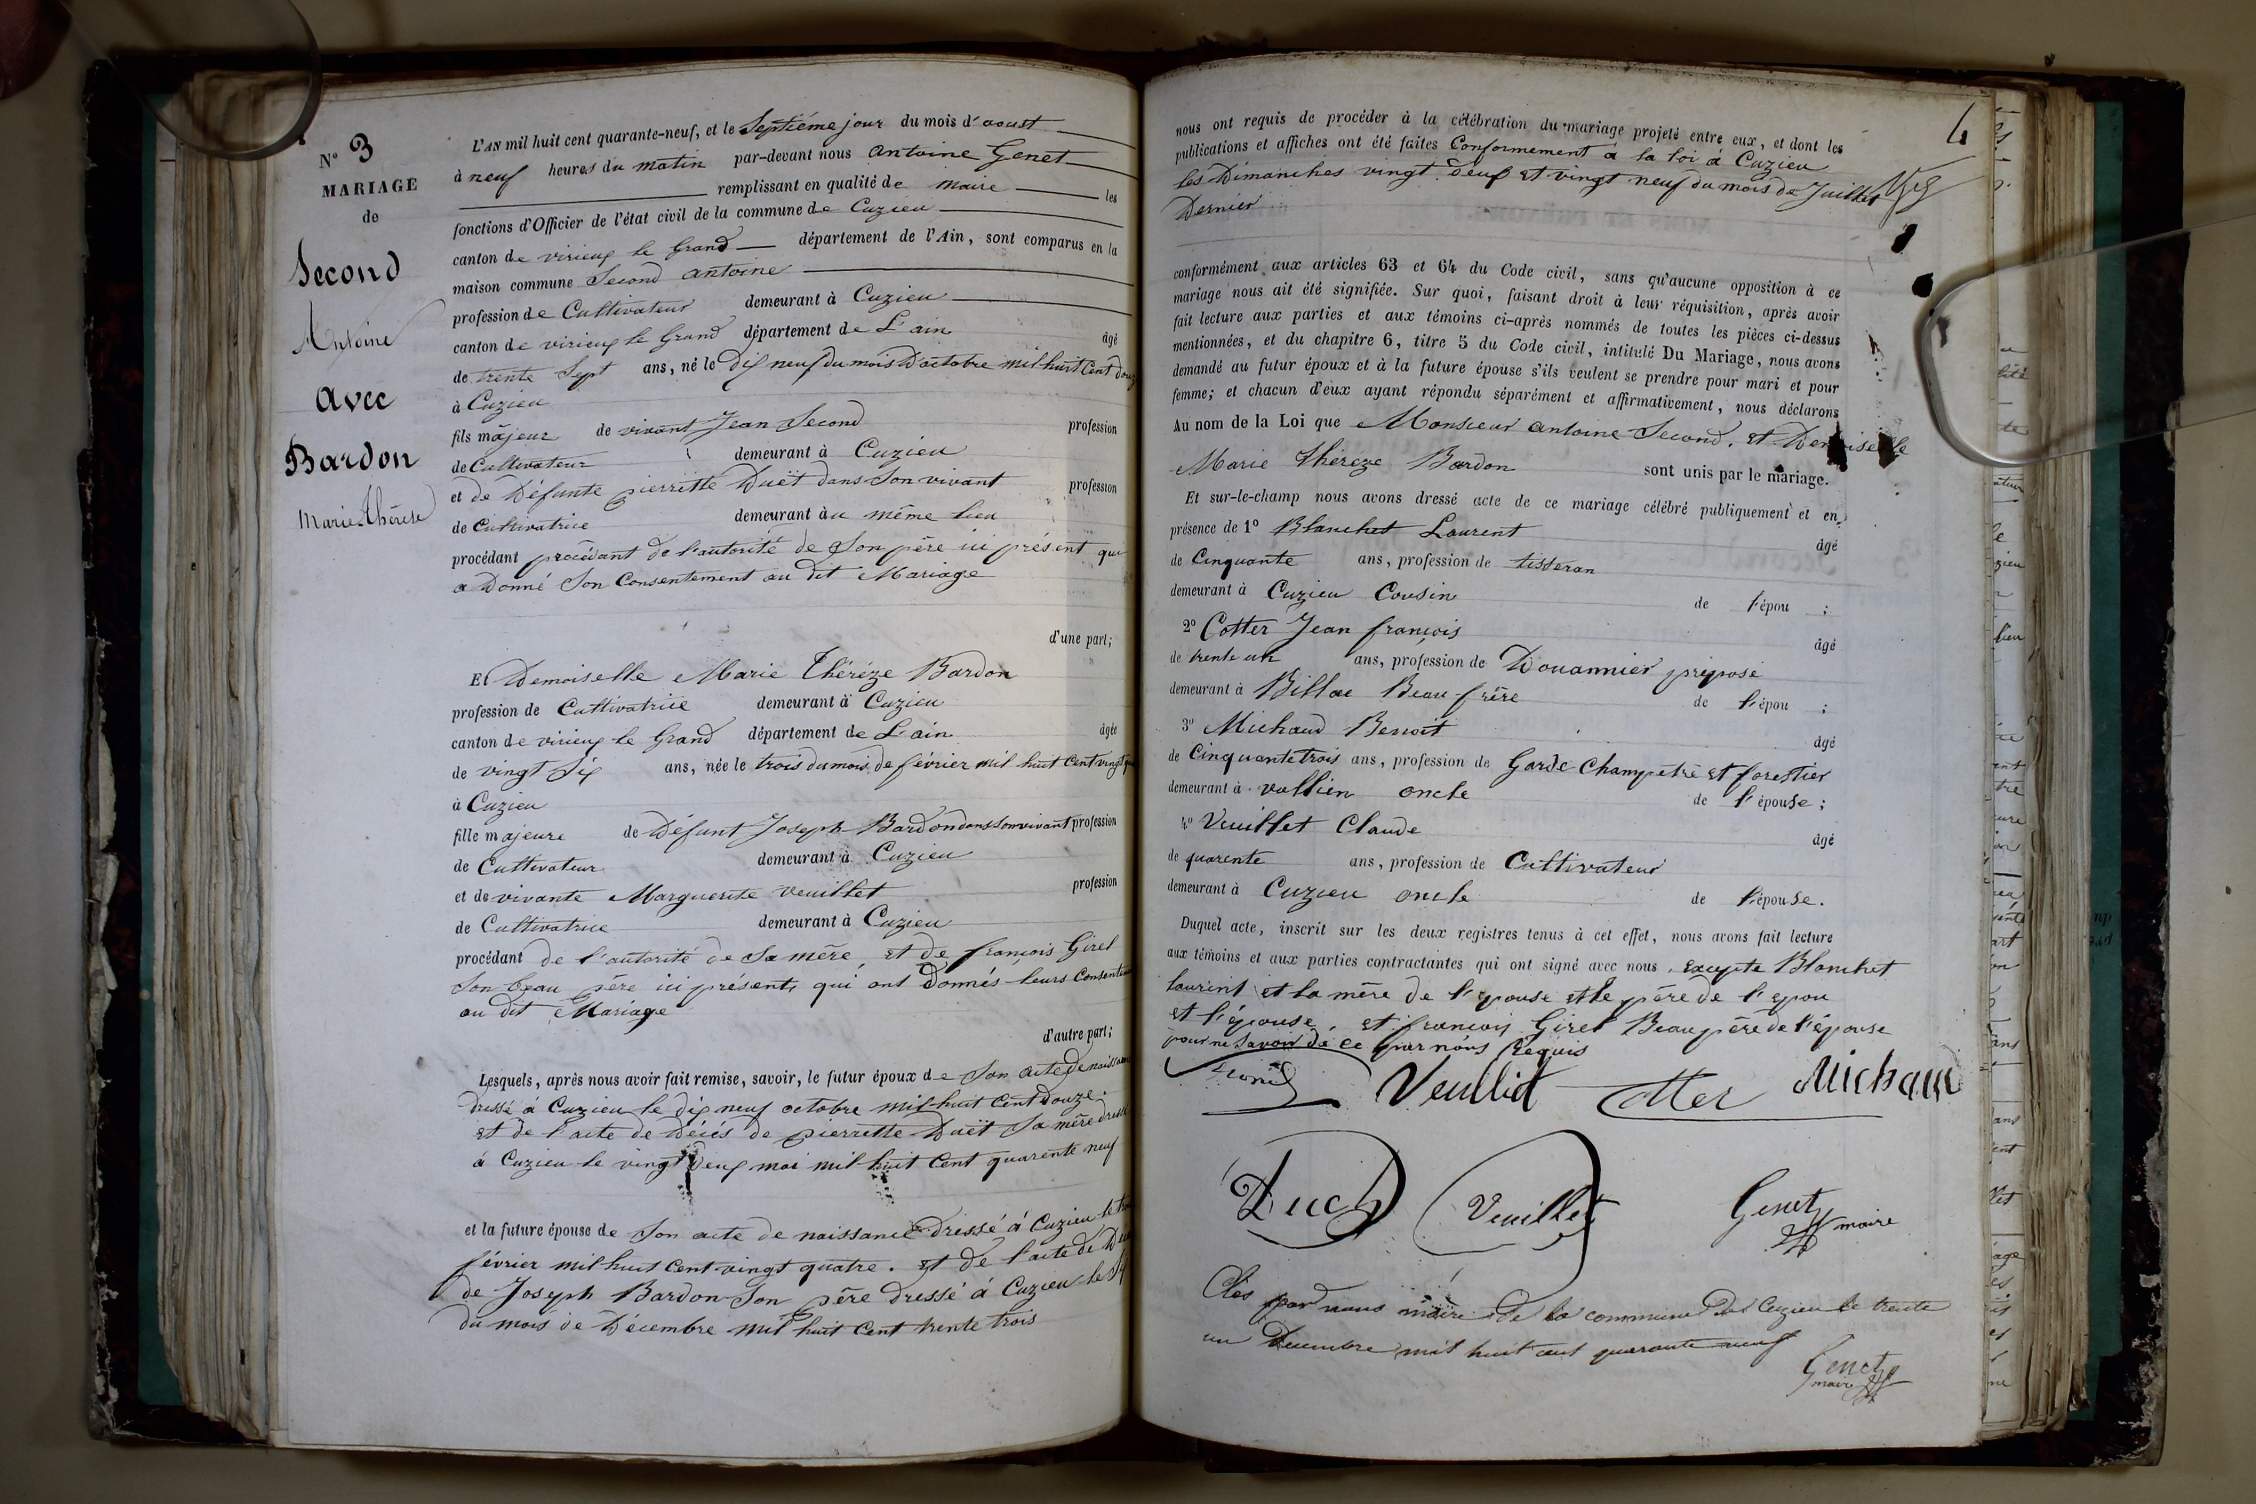 N° 3
MARIAGE
de
Second
Antoine
avec
Bardon
Marie Thérèse
L'AN mil huit cent quarante-neuf, et le Septiéme jour du mois d'aoust
à neuf heures du matin par-devant nous Antoine Genet
remplissant en qualité de maire les
fonctions d'Officier de l'état civil de la commune de Cuzieu
canton de virieux le Grand département de l'Ain, sont comparus en la
maison commune Second antoine
profession de Cultivateur demeurant à Cuzieu
canton de virieux le Grand département de L'ain âgé
de trente Sept ans, né le Dix neuf du mois D'octobre mil huit Cent douze
à Cuzieu
fils majeur de vivant Jean Second profession
de Cultivateur demeurant à Cuzieu
et de Défunte pierrette Duët dans Son vivant profession
de Cultivatrice demeurant àu même lieu
procédant procédant de l'autorité de Son père ici présent qui
a Donné Son Consentement au dit Mariage
d'une part;
Et Demoiselle Marie Thérèze Bardon
profession de Cultivatrice demeurant à Cuzieu
canton de virieux le Grand département de L'ain âgée
de vingt Six ans, née le trois du mois de février mil huit Cent vingt
à Cuzieu
fille majeure de Défunt Joseph Bardon dans Son vivant profession
de Cultivateur demeurant à Cuzieu
et de vivante Marguerite Veuillet profession
de Cultivatrice demeurant à Cuzieu
procédant de l'autorité de Sa mère, et de françois Giret
Son beau père ici présents qui ont Donnés leurs
au dit Mariage
d'autre part;
Lesquels, après nous avoir fait remise, savoir, le futur époux de Son acte de
dressé à Cuzieu le dix neuf octobre mil huit Cent Douze.
et de l'acte de Décés de pierrette Duët Sa mère
à Cuzieu le vingt Deux mai mil huit Cent quarente neuf
et la future épouse de Son acte de naissance Dressé à Cuzieu le
février mil huit Cent vingt quatre. et de l'acte de
de Joseph Bardon Son père dressé à Cuzieu le
du mois de Décembre mil huit Cent trente trois
4
nous ont requis de procéder à la célébration du mariage projeté entre eux, et dont les
publications et affiches ont été faites Conformement à la loi à Cuzieu
les Dimanches vingt Deux et vingt neuf du mois de Juillet
Dernier
conformément aux articles 63 et 64 du Code civil, sans qu'aucune opposition à ce
mariage nous ait été signifiée. Sur quoi, faisant droit à leur réquisition, après avoir
fait lecture aux parties et aux témoins ci-après nommés de toutes les pièces ci-dessus
mentionnées, et du chapitre 6, titre 5 du Code civil, intitulé Du Mariage, nous avons
demandé au futur époux et à la future épouse s'ils veulent se prendre pour mari et pour
femme; et chacun d'eux ayant répondu séparément et affirmativement, nous déclarons
Au nom de la Loi que Monsieur antoine Second. et Demoiselle
Marie thérèze Bardon sont unis par le mariage.
Et sur-le-champ nous avons dressé acte de ce mariage célébré publiquement et en
présence de 1° Blanchet Laurent âgé
de Cinquante ans, profession de tisseran
demeurant à Cuzieu Cousin de l'épou ;
2° Cotter Jean françois âgé
de trente un ans, profession de Douannier préposé
demeurant à Beau-frère de l'épou ;
3° Michaud Benoit âgé
de Cinquante trois ans, profession de Garde Champetre et forestier
demeurant à oncle de l'épouse ;
4° Veuillet Claude âgé
de quarente ans, profession de Cultivateur
demeurant à Cuzieu oncle de l'épouse.
Duquel acte, inscrit sur les deux registres tenus à cet effet, nous avons fait lecture
aux témoins et aux parties contractantes qui ont signé avec nous, Excepte Blanchet
laurent et la mère de l'epouse et le père de l'epou
et l'épouse, et françois Giret Beau père de l'épouse
pour ne Savoir de ce par nous Requis
Second Veullid Cotter Michaud
Duch Veuillet Genet
maire
Clos par nous maire de la commune de Cuzieu le trente
un Decembre mil huit cent quarante neuf
Genet
maire